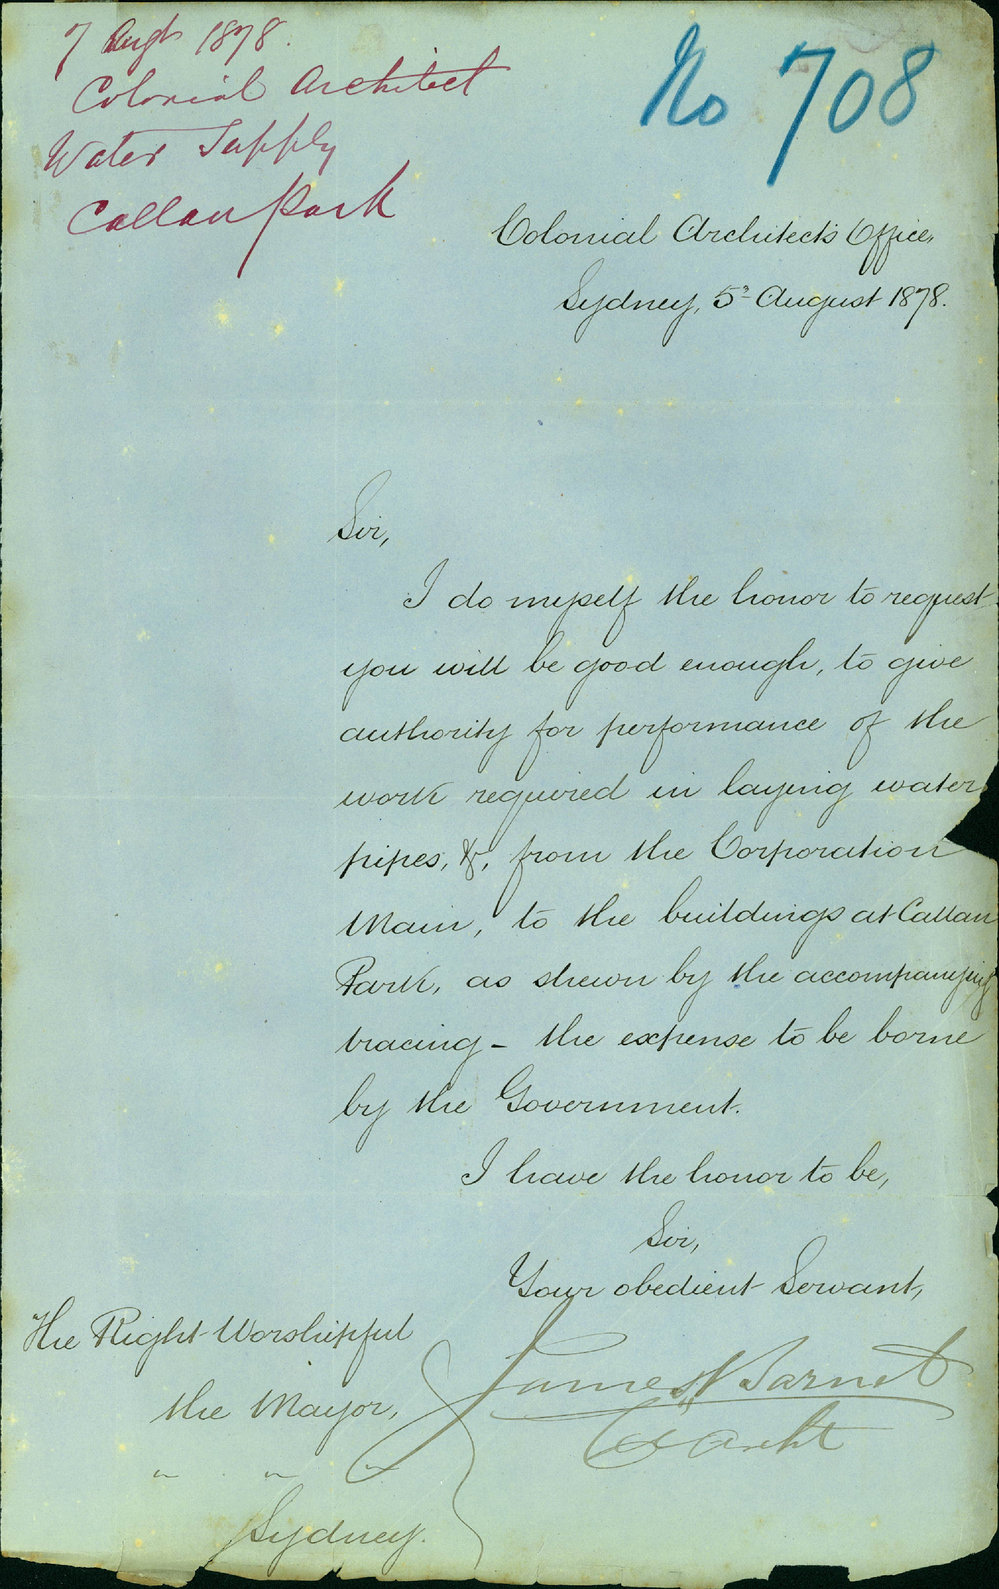 7 Augt 1878.
Colonial Architect
Water Supply
Callan Park
No 708
Colonial Architect's Office,
Sydney, 5th August 1878.
Sir,
I do myself the honor to request
you will be good enough, to give
authority for performance of the
work required in laying water
pipes, &c, from the Corporation
Main, to the buildings at Callan
Park, as shewn by the accompanying
tracing - the expense to be borne
by the Government.
I have the honor to be,
Sir,
Your obedient Servant,
James Barnet
Col Archt
The Right Worshipful
the Mayor,
" " "
Sydney.